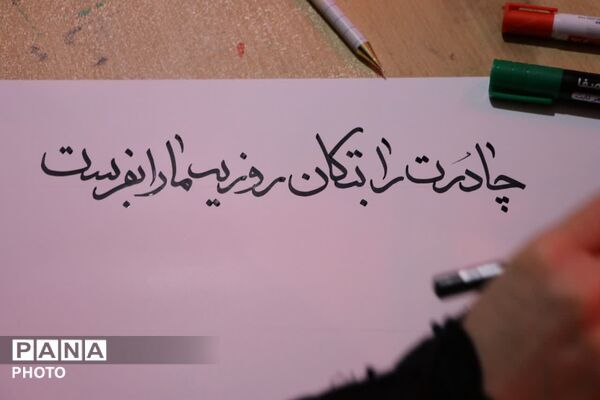 چادُرت را بتکان روزی ما را بفرست
PANA
PHOTO